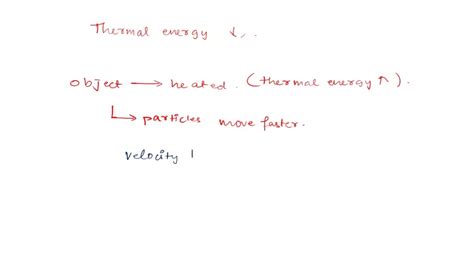 Thermal energy ↓..
object → heated. (thermal energy ↑).
↳ particles move faster.
velocity |